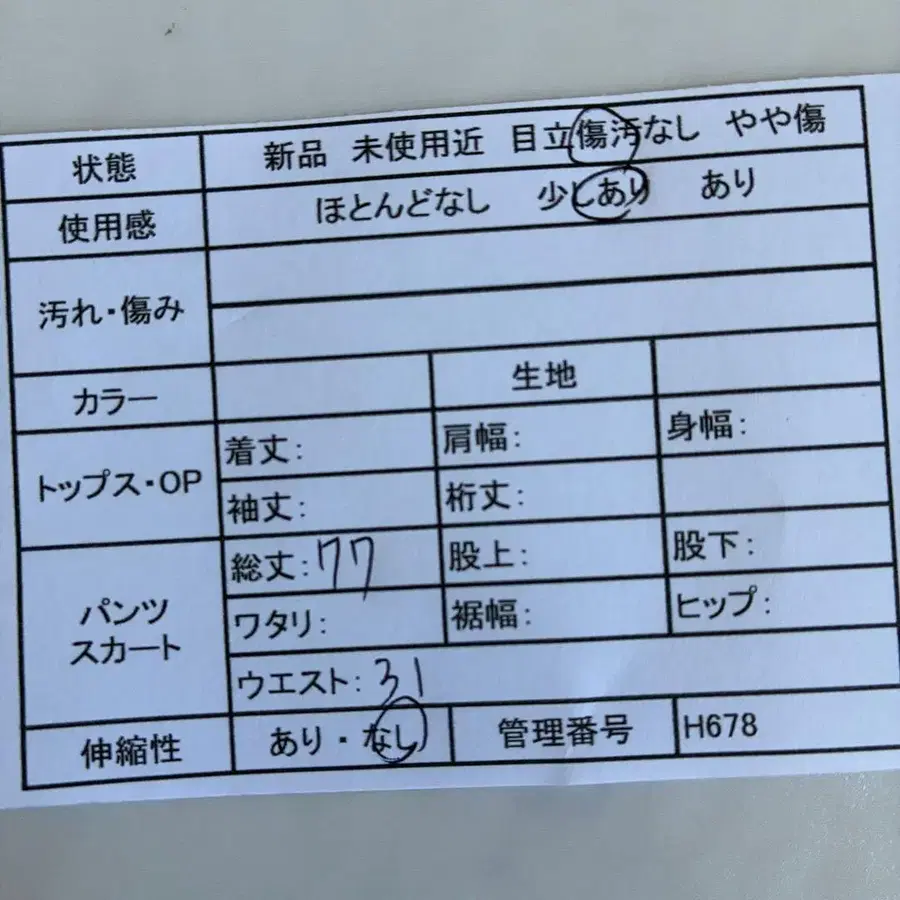 状態 新品 未使用近 目立傷汚なし やや傷
使用感 ほとんどなし 少しあり あり
汚れ・傷み
カラー 生地
トップス・OP 着丈: 肩幅: 身幅:
袖丈: 裄丈:
パンツ スカート 総丈:77 股上: 股下:
ワタリ: 裾幅: ヒップ:
ウエスト:31
伸縮性 あり・なし 管理番号 H678